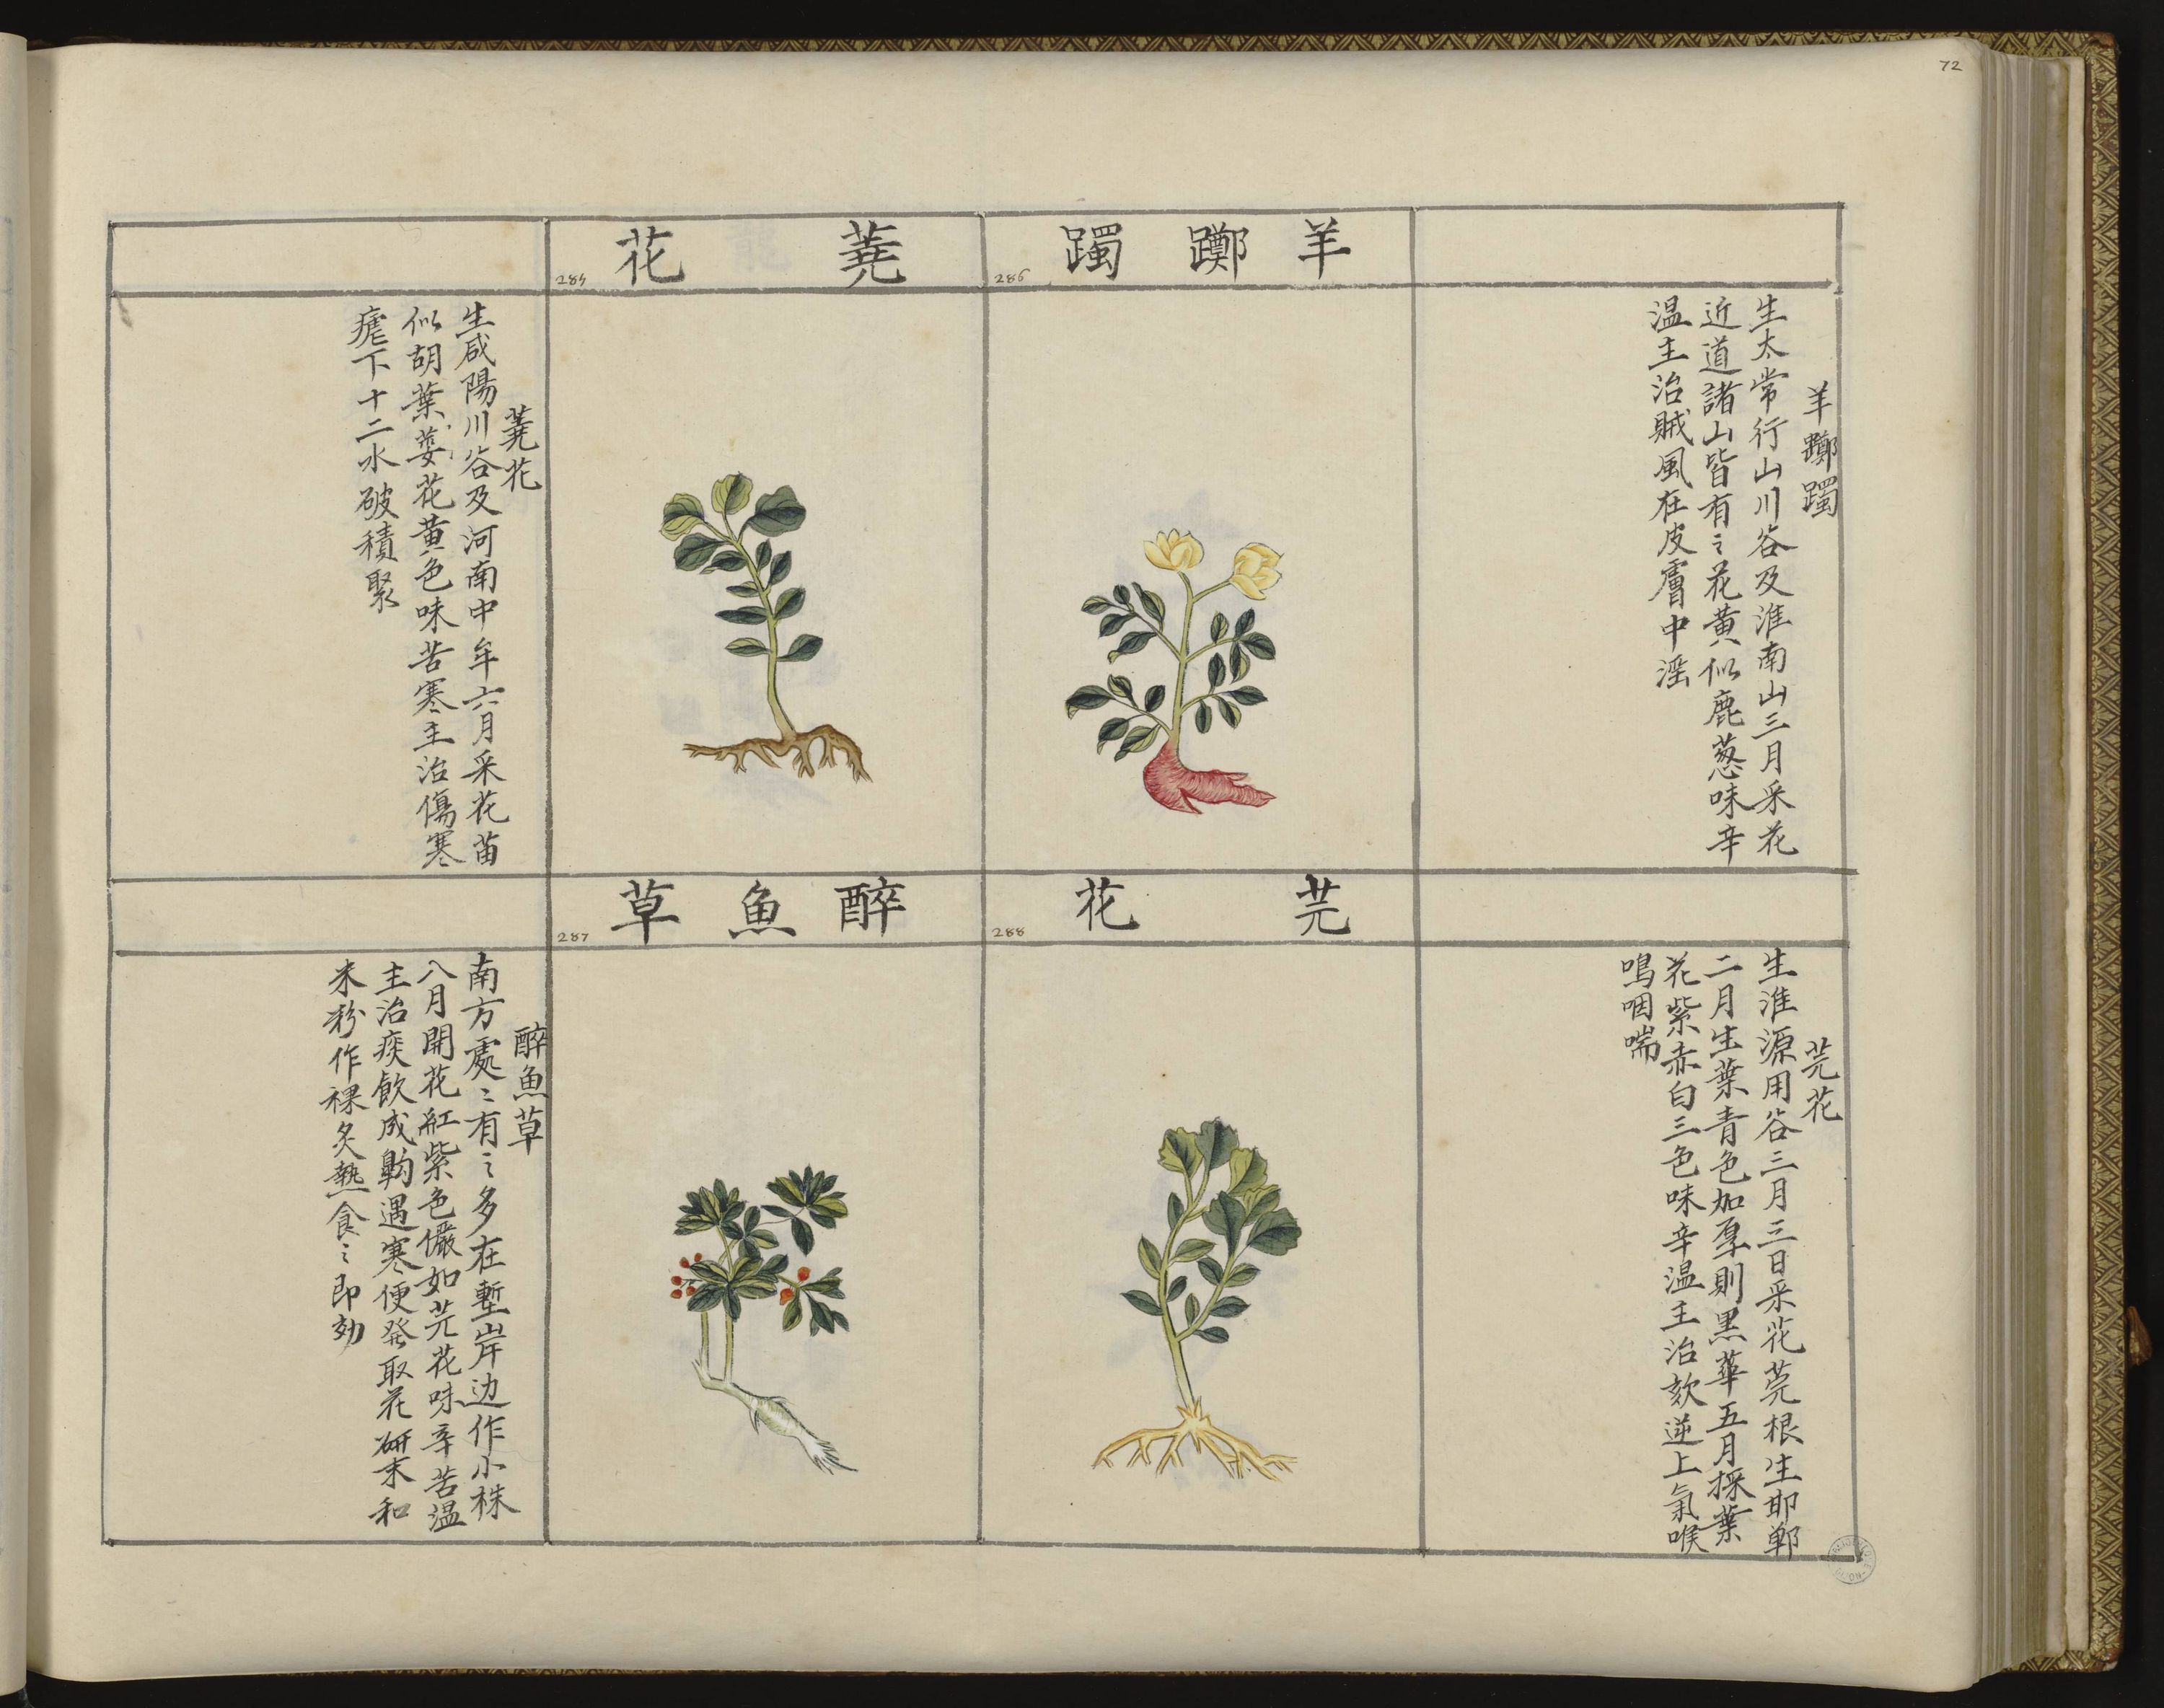 72
羊躑躅
286
羊躑躅
生太常行山川谷及淮南山三月采花
近道諸山皆有〻花黄似鹿葱味辛
温主治賊風在皮膚中淫
蕘花
285
蕘花
生咸陽川谷及河南中牟六月采花苗
似胡葉荽花黄色味苦寒主治傷寒
瘧下十二水破積聚
芫花
288
芫花
生淮源用谷三月三日采花芫根生邯鄲
二月生葉青色加厚則黒華五月採葉
花紫赤白三色味辛温主治欬逆上氣喉
鳴咽喘
醉魚草
287
醉魚草
南方處〻有〻多在塹岸边作小株
八月開花紅紫色儼如芫花味辛苦温
主治痰飲成齁遇寒便發取花研末和
米粉作粿炙熱食〻即効